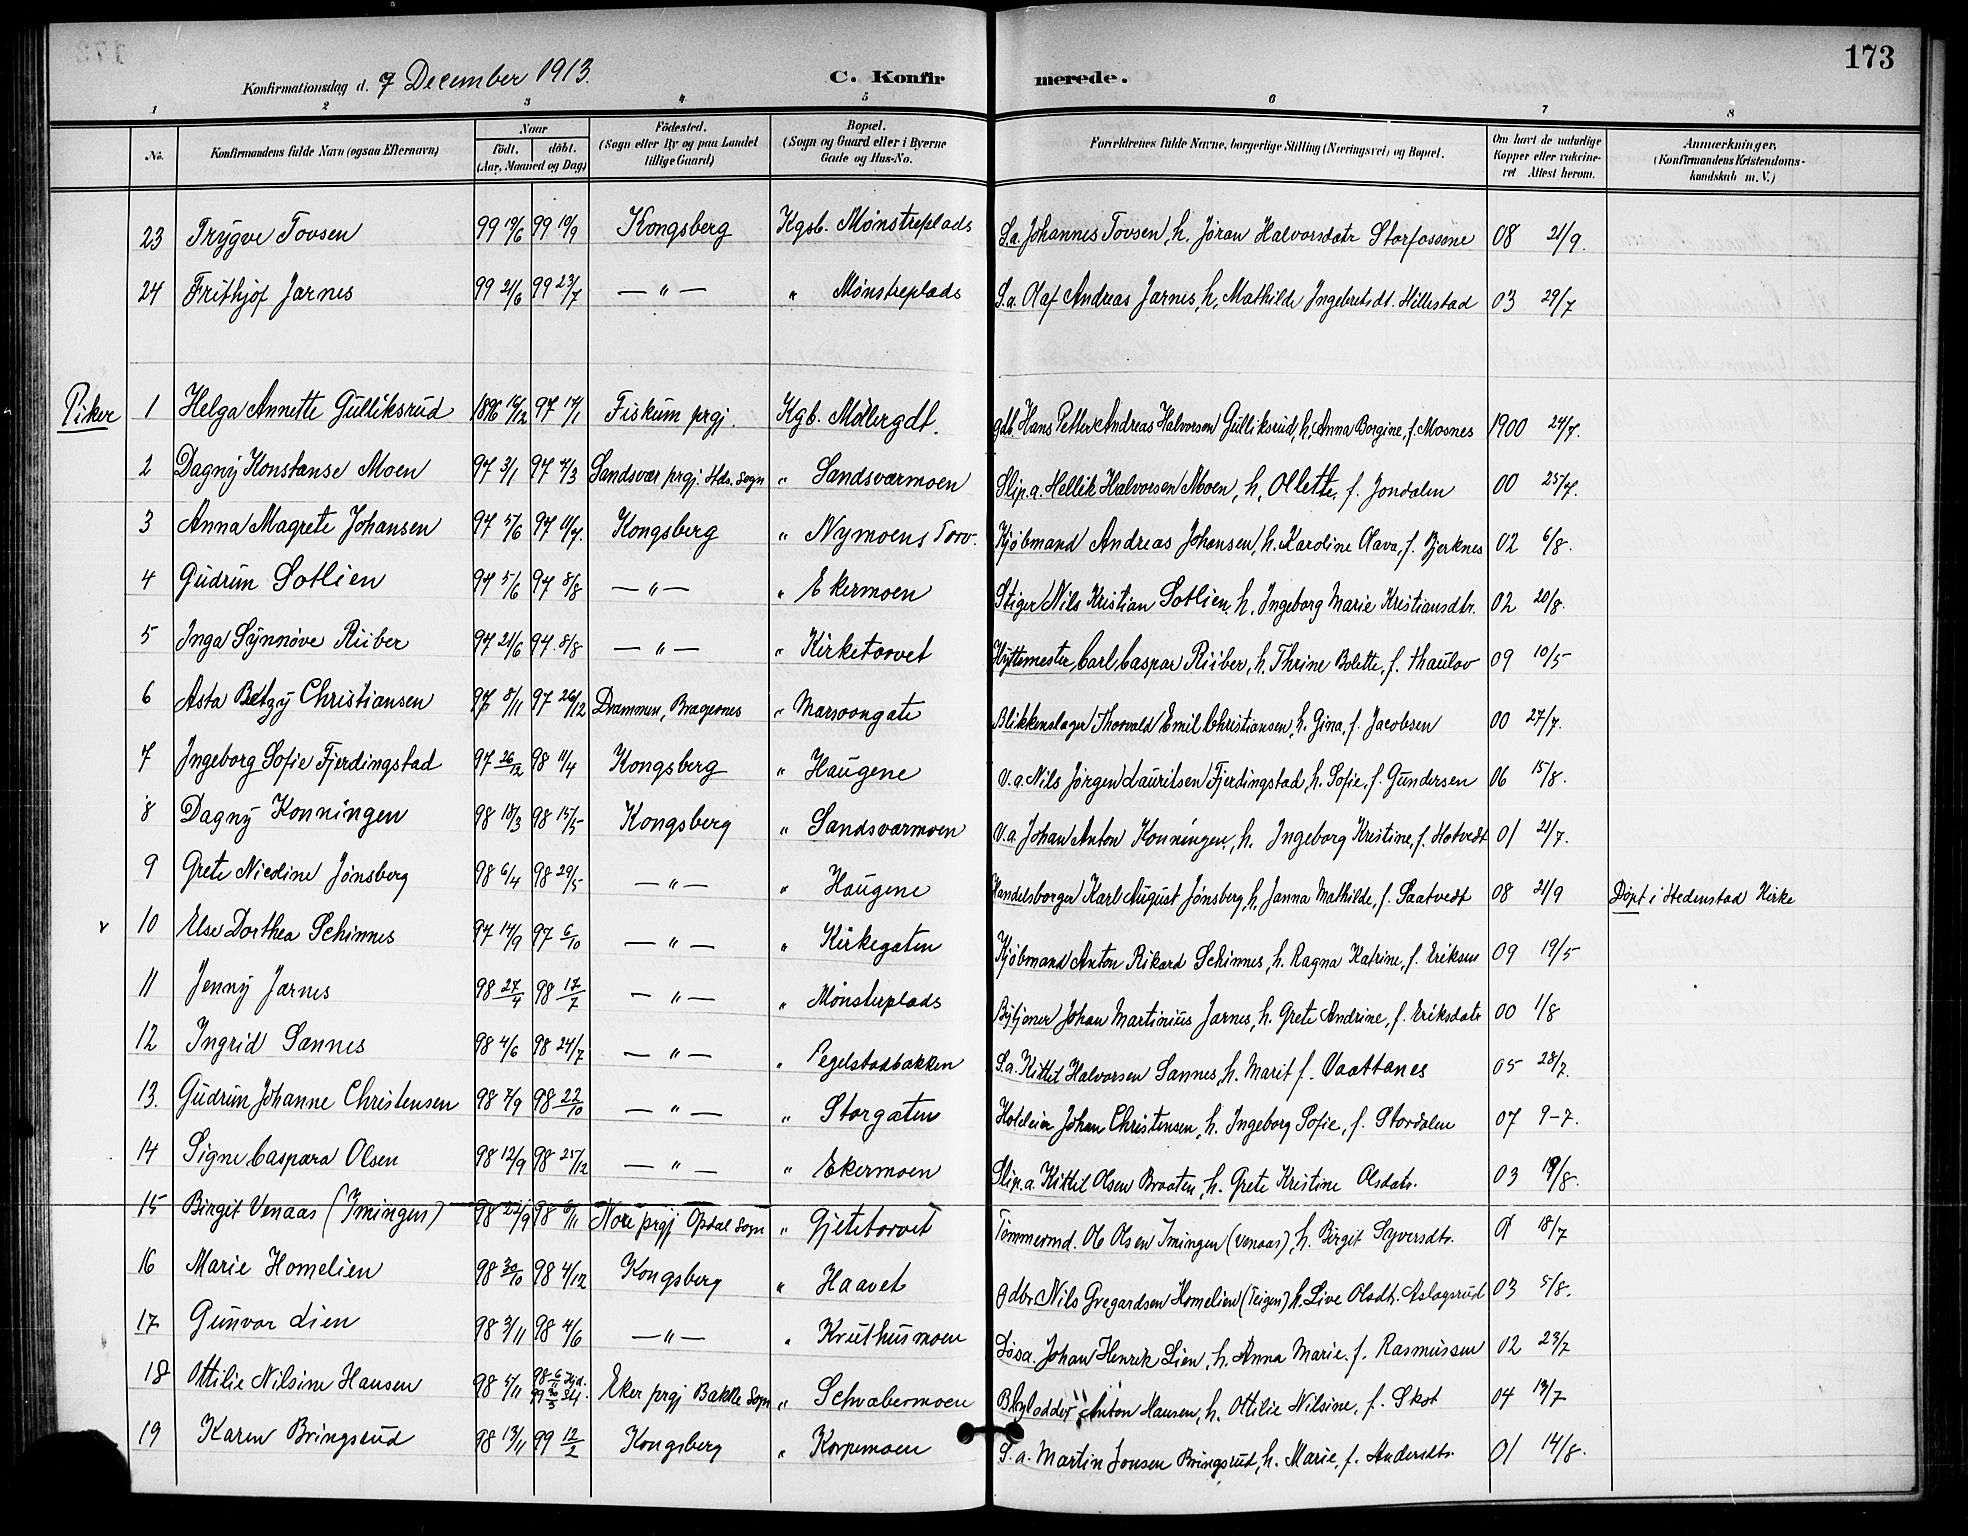 173
Konfirmationsdag d. 7 December 1913.
C. Konfirmerede.
1 2 3 4 5 6 7 8
No. | Konfirmandens fulde Navn (ogsaa Efternavn) | Naar födt. döbt. (Aar, Maaned og Dag) | Födested. (Sogn eller By og paa Landet tillige Gaard) | Bopæl. (Sogn og Gaard eller i Byerne Gade og Hus-No. | Forældrenes fulde Navne, borgerlige Stilling (Næringsvei) og Bopæl. | Om havt de naturlige Kopper eller vakcineret Attest herom. | Anmærkninger. (Konfirmandens Kristendomskundskab m. V.)
23 Trygve Tovsen 99 19/6 99 10/9 Kongsberg Kgsb. Mønstreplads S.a. Johannes Tovsen, h. Jøran Halvorsdatr Storfossene 08 21/9.
24 Frithjof Jarnes 99 2/6 99 23/7 — " — " Mønstreplads S.a. Olaf Andreas Jarnes, h. Mathilde Ingebretsdt. Hillestad 03 29/7
Piker
1 Helga Annette Gulliksrud 1896 16/12 97 17/1 Fiskum prgj. Kgb. Møllergdt. gdb. Hans Petter Andreas Halvorsen Gulliksrud, h. Anna Borgine, f. Mosnes 1900 24/7.
2 Dagny Konstanse Moen 97 3/1 97 7/3 Sandsvær prgj. Hds. Sogn " Sandsværmoen Slip.a. Hellik Halvorsen Moen, h. Ollette, f. Jondalen 00 25/7.
3 Anna Magrete Johansen 97 5/6 97 11/7. Kongsberg " Nymoens Torv. Kjøbmand Andreas Johansen, h. Karoline Olava, f. Bjerknes 02 6/8.
4 Gudrun Sotlien 97 5/6 97 8/8 — " — " Ekermoen Stiger Nils Kristian Sotlien, h. Ingeborg Marie Kristiansdtr. 02 20/8.
5 Inga Synnøve Riiber 97 21/6 97 8/8 — " — " Kirketorvet Hyttemester Carl Caspar Riiber, h. Thrine Bolette, f. Thaulov 09 10/5
6 Asta Betzy Christiansen 97 8/11 97 26/12 Drammen, Bragernes " Marsoongate Blikkenslager Thorvald Emil Christiansen, h. Gina, f. Jacobsen 00 27/7.
7 Ingeborg Sofie Fjerdingstad 97 26/12 98 11/4 Kongsberg " Haugene V.a. Nils Jørgen Lauritsen Fjerdingstad, h. Sofie, f. Gundersen 06 15/8.
8 Dagny Konningen 98 18/3 98 15/5 Kongsberg " Sandsværmoen V.a. Johan Anton Konningen, h. Ingeborg Kristine, f. Hotvedt 01 21/7.
9 Grete Nicdine Jønsberg 98 6/4 98 29/5 — " — " Haugene Handelsborger Karl August Jønsberg, h. Janna Mathilde, f. Saatvedt 08 21/9 Døpt i Hedenstad Kirke
v 10 Else Dorthea Schinnes 97 14/9 97 6/10 — " — " Kirkegaten Kjøbmand Anton Rikard Schinnes, h. Ragna Katrine, f. Eriksen 09 19/5
11 Jenny Jarnes 98 27/4 98 17/7 — " — " Mønsterplads Bytjener Johan Martinius Jarnes, h. Grete Andrine, f. Eriksdatr 00 1/8
12 Ingrid Sannes 98 4/6 98 24/7 — " — " Pegelstadbakken S.a. Kittil Halvorsen Sannes, h. Marit f. Vaattanes 05 28/7.
13. Gudrun Johanne Christensen 98 7/9 98 22/10 — " — " Storgaten Hoteleier Johan Christensen, h. Ingeborg Sofie, f. Stordalen 07 9-7.
14 Signe Caspara Olsen 98 12/9 98 25/12 — " — " Ekermoen Slip.a. Kittil Olsen Braaten, h. Grete Kristine Olsdatr. 03 19/8.
15 Birgit Venaas (Imingen) 98 22/9 98 6/11 Nore prgj Opdal Sogn " Gjetetorvet Tømmermd. Ole Olsen Imingen (Venaas), h. Birgit Syversdtr. 01 18/7
16 Marie Homelien 98 30/10 98 4/12 Kongsberg " Haavet gdbr Nils Gregardsen Homelien (Teigen) h. Live Olsdtr. Aslagsrud 03 5/8.
17 Gunvor Lien 98 3/11 98 4/6 — " — " Kruthusmoen Løsa. Johan Henrik Lien, h. Anna Marie. f. Rasmussen 02 23/7
18 Ottilie Nilsine Hansen 98 5/11 98 6/11 Hjd. 99 30/3 Eker prgj Bakke Sogn " Schwabermoen Anton Hansen, h. Ottilie Nilsine, f. Skot 04 13/7
19 Karen Bringsrud 98 13/11 99 12/2 Kongsberg " Korpemoen S.a. Martin Jonsen Bringsrud, h. Marie, f. Andersdtr. 01 14/8.